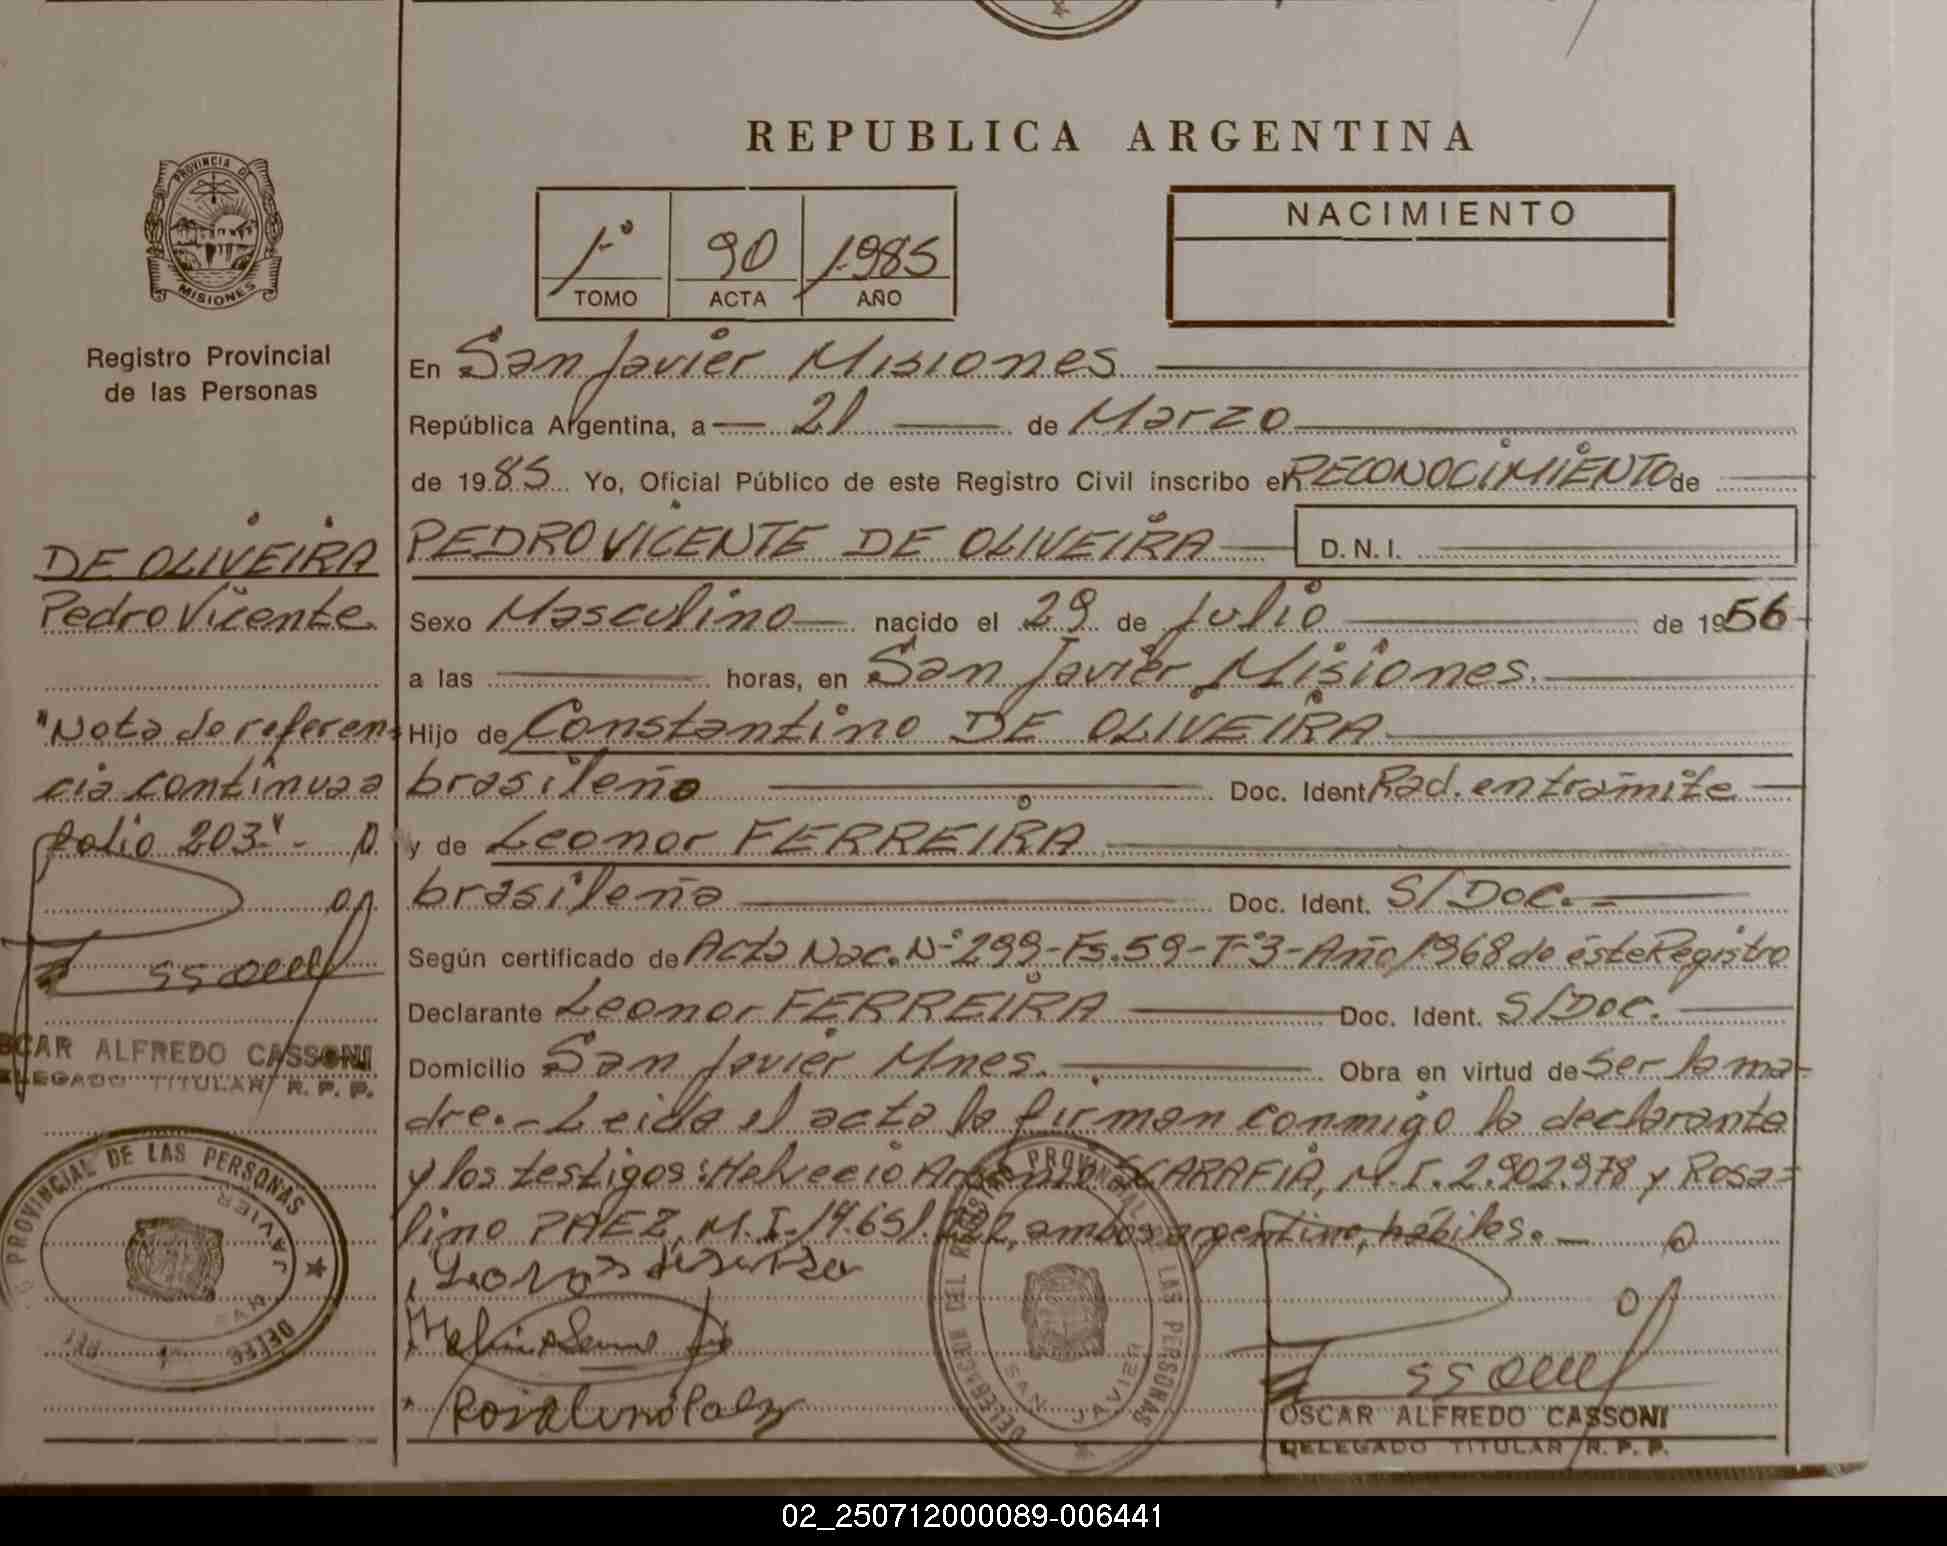 REPUBLICA ARGENTINA
PROVINCIA DE
MISIONES
Registro Provincial
de las Personas
1º 90 1985
TOMO ACTA AÑO
NACIMIENTO
En San Javier Misiones
República Argentina, a 21 de Marzo
de 1985 Yo, Oficial Público de este Registro Civil inscribo el RECONOCIMIENTO de
PEDRO VICENTE DE OLIVEIRA D.N.I.
Sexo Masculino nacido el 29 de Julio de 1956
a las horas, en San Javier Misiones.
Hijo de Constantino DE OLIVEIRA
brasileño Doc. Ident. Rad. en trámite
y de Leonor FERREIRA
brasileña Doc. Ident. S/Doc.
Según certificado de Acta Nac. Nº 299-Fs. 59-Tº 3-Año 1968 de éste Registro
Declarante Leonor FERREIRA Doc. Ident. S/Doc.
Domicilio San Javier Mnes. Obra en virtud de ser la ma-
dre.- Leida el acta la firman conmigo la declarante
y los testigos: Helvecio SCARAFIA, M.I. 2.902.978 y Rosa=
lino PAEZ, M.I. ambos argentino, hábiles.-
Rosalino Paez
OSCAR ALFREDO CASSONI
DELEGADO TITULAR R.P.P.
DELEGACION DEL REGISTRO PROVINCIAL DE LAS PERSONAS
SAN JAVIER
DE OLIVEIRA
Pedro Vicente
"Nota de referen=
cia continua a
folio 203v.-
OSCAR ALFREDO CASSONI
DELEGADO TITULAR R.P.P.
PROVINCIAL DE LAS PERSONAS
SAN JAVIER
02_250712000089-006441